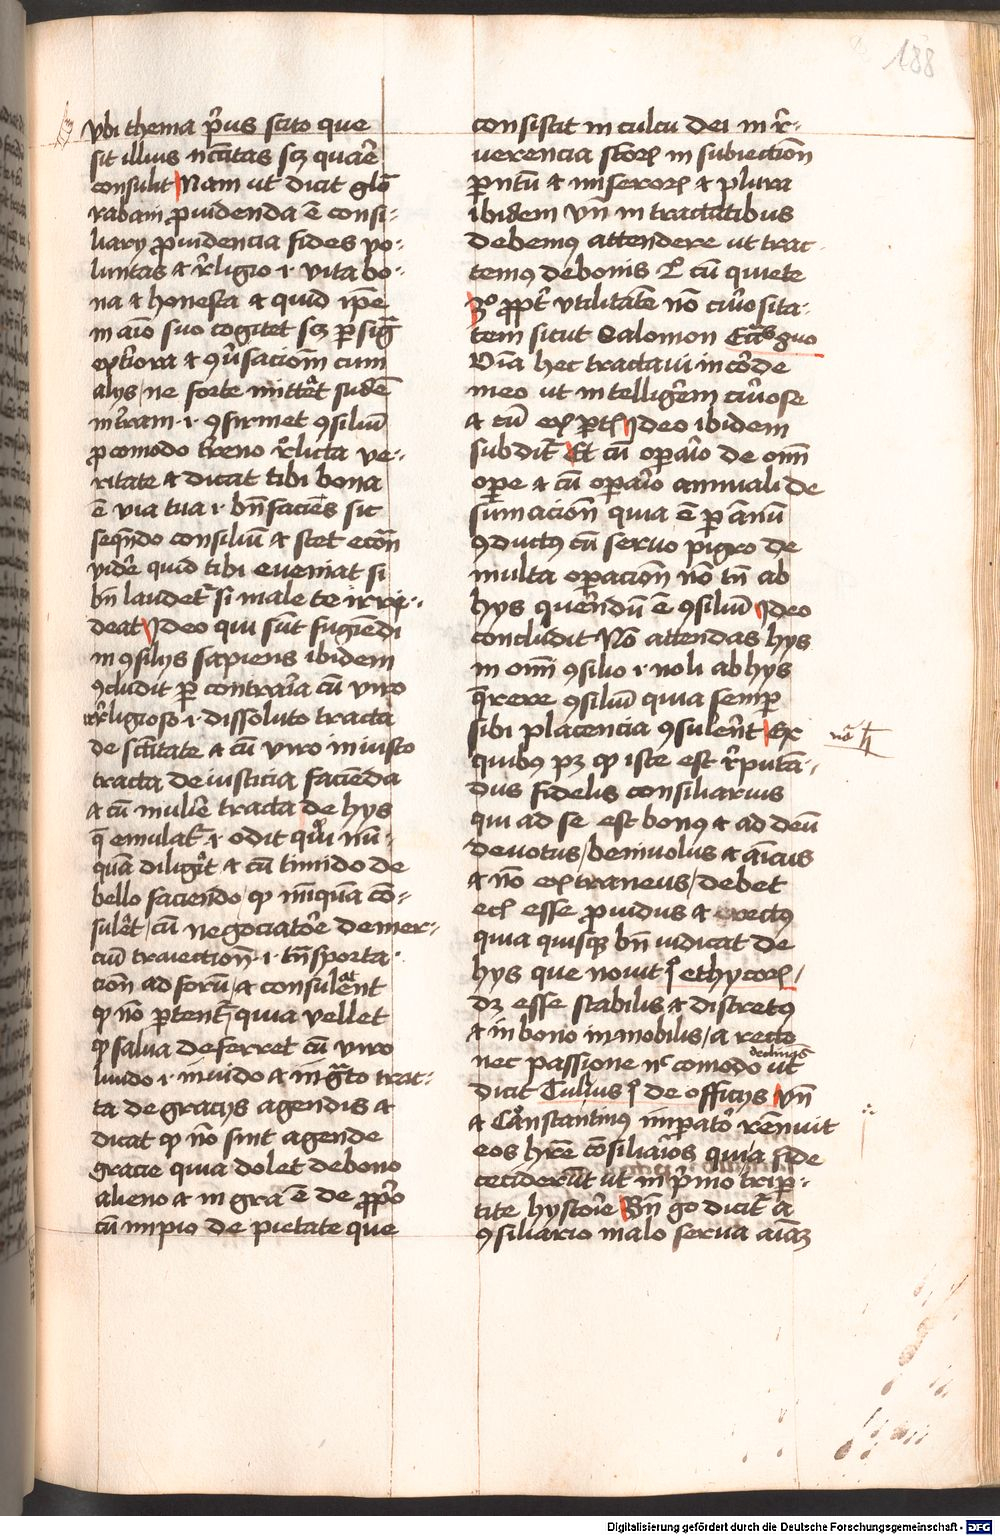 188
vbi thema pͥus scito que
sit illius nc̄c̄itas scꝫ quar̄e
consulit Nam ut dicit glo̅
rabani ꝓuidenda ē consi-
liarÿ ꝓuidencia fides vo-
luntas ⁊ rͤligio .i. vita bo-
na ⁊ honesta ⁊ quid ip̄e
in aīo suo cogitet scꝫ ꝑ sig̅
ext̓iora ⁊ ꝯu̓sacioēm cum
alÿs / ne forte mittet sudē
in t̓ram .i. ꝯfirmet ꝯsiliū
ꝓ comodo t̓reno rͤlicta ve-
ritate ⁊ dicat tibi bona
ē via tua .i. bn̄ facies sic
seqn̄do consiliū ⁊ stet econ̄
vider̄e quid tibi eveniat si
bn̄ laudet᷑ si male te irri-
deat Ideo qui sūt fugiēdi
in ꝯsilÿs sapiens ibidem
ꝯcludit ꝑ contrar̄ia cū viro
irrͤligioso .i. dissoluto tracta
de sc̄itate ⁊ cū viro iniusto
tracta de iusticia facienda
⁊ cū mulier̄e tracta de hÿs
q̄ emulat᷑ .i. odit
quā diligit ⁊ cū timido de
bello faciendo ꝙ nūquā co̅-
sulet / cū negociator̄e de mer-
ciū traiection̄ .i. tn̄sporta-
cion̄ ad forū / ⁊ consulent
ꝙ nō ꝑtent᷑ quia vellet
ꝙ salua deferret cū viro
liuido .i. inuido ⁊ ingͣto trac-
ta de gracÿs agendis ⁊
dicat ꝙ nō sint agende
gracie quia dolet de bono
alieno ⁊ ingra ē de ꝓpͥo
cū impio de pietate que
consistit in cultu dei in rͤ-
uerencia sc̄oꝝ in subiection̄
ꝑntū ⁊ miseroꝝ ⁊ plura
ibidem vn̄ in tractatibus
debemꝰ attendere ut trac-
temꝰ de bonis 2º cū quiete
3º ꝓpt̓ vtilitatē nō cu̓iosita-
tem sicut Salomon Ecc̄s 9uo
Oīa hec tractaui in cor̄de
meo ut intelliger̄em cu̓iose
⁊ cū Ideo ibidem
subdit᷑ Et cū oꝑar̄io de om̄i
oꝑe ⁊ cū oꝑar̄io annuali de
sumacion̄ quia ē ꝑ ānū
ꝯductꝰ cū seruo pigro de
multa oꝑacion̄ nō tn̄ ab
hÿs quer̄endū ē ꝯsiliū Ideo
concludit Nō attendas hÿs
in om̄i ꝯsilio .i. noli ab hÿs
q̄rere ꝯsiliū quia semꝑ
sibi placencia ꝯsuler̄nt Ex
quibꝰ pꝫ ꝙ iste est rͤputan̄-
dus fidelis consiliarius
qui ad se est bonꝰ ⁊ ad deū
deuotus / beniuolus ⁊ amicus
⁊ nō extraneus / debet
ecꝉ esse ꝓuidus ⁊ erectꝰ
quia quisqꝫ bn̄ iudicat de
hÿs que nouit pͦ ethycoꝝ /
dꝫ esse stabilis ⁊ discretꝰ
⁊ in bono inmobilis / a recto
nec passione nͨ comodo declinās ut
dicit Tulius pͦ de officÿs vn̄
⁊ Constantinus imꝑator̄ ren̄uit
eos hr̄e cōsiliar̄ios quia fide
cecider̄ūt ut in pͥmo triꝑ-
tite hystor̄ie Bn̄ gͦ dicit᷑ a
ꝯsiliario malo serua aīaꝫ
Digitalisierung gefördert durch die Deutsche Forschungsgemeinschaft - DFG